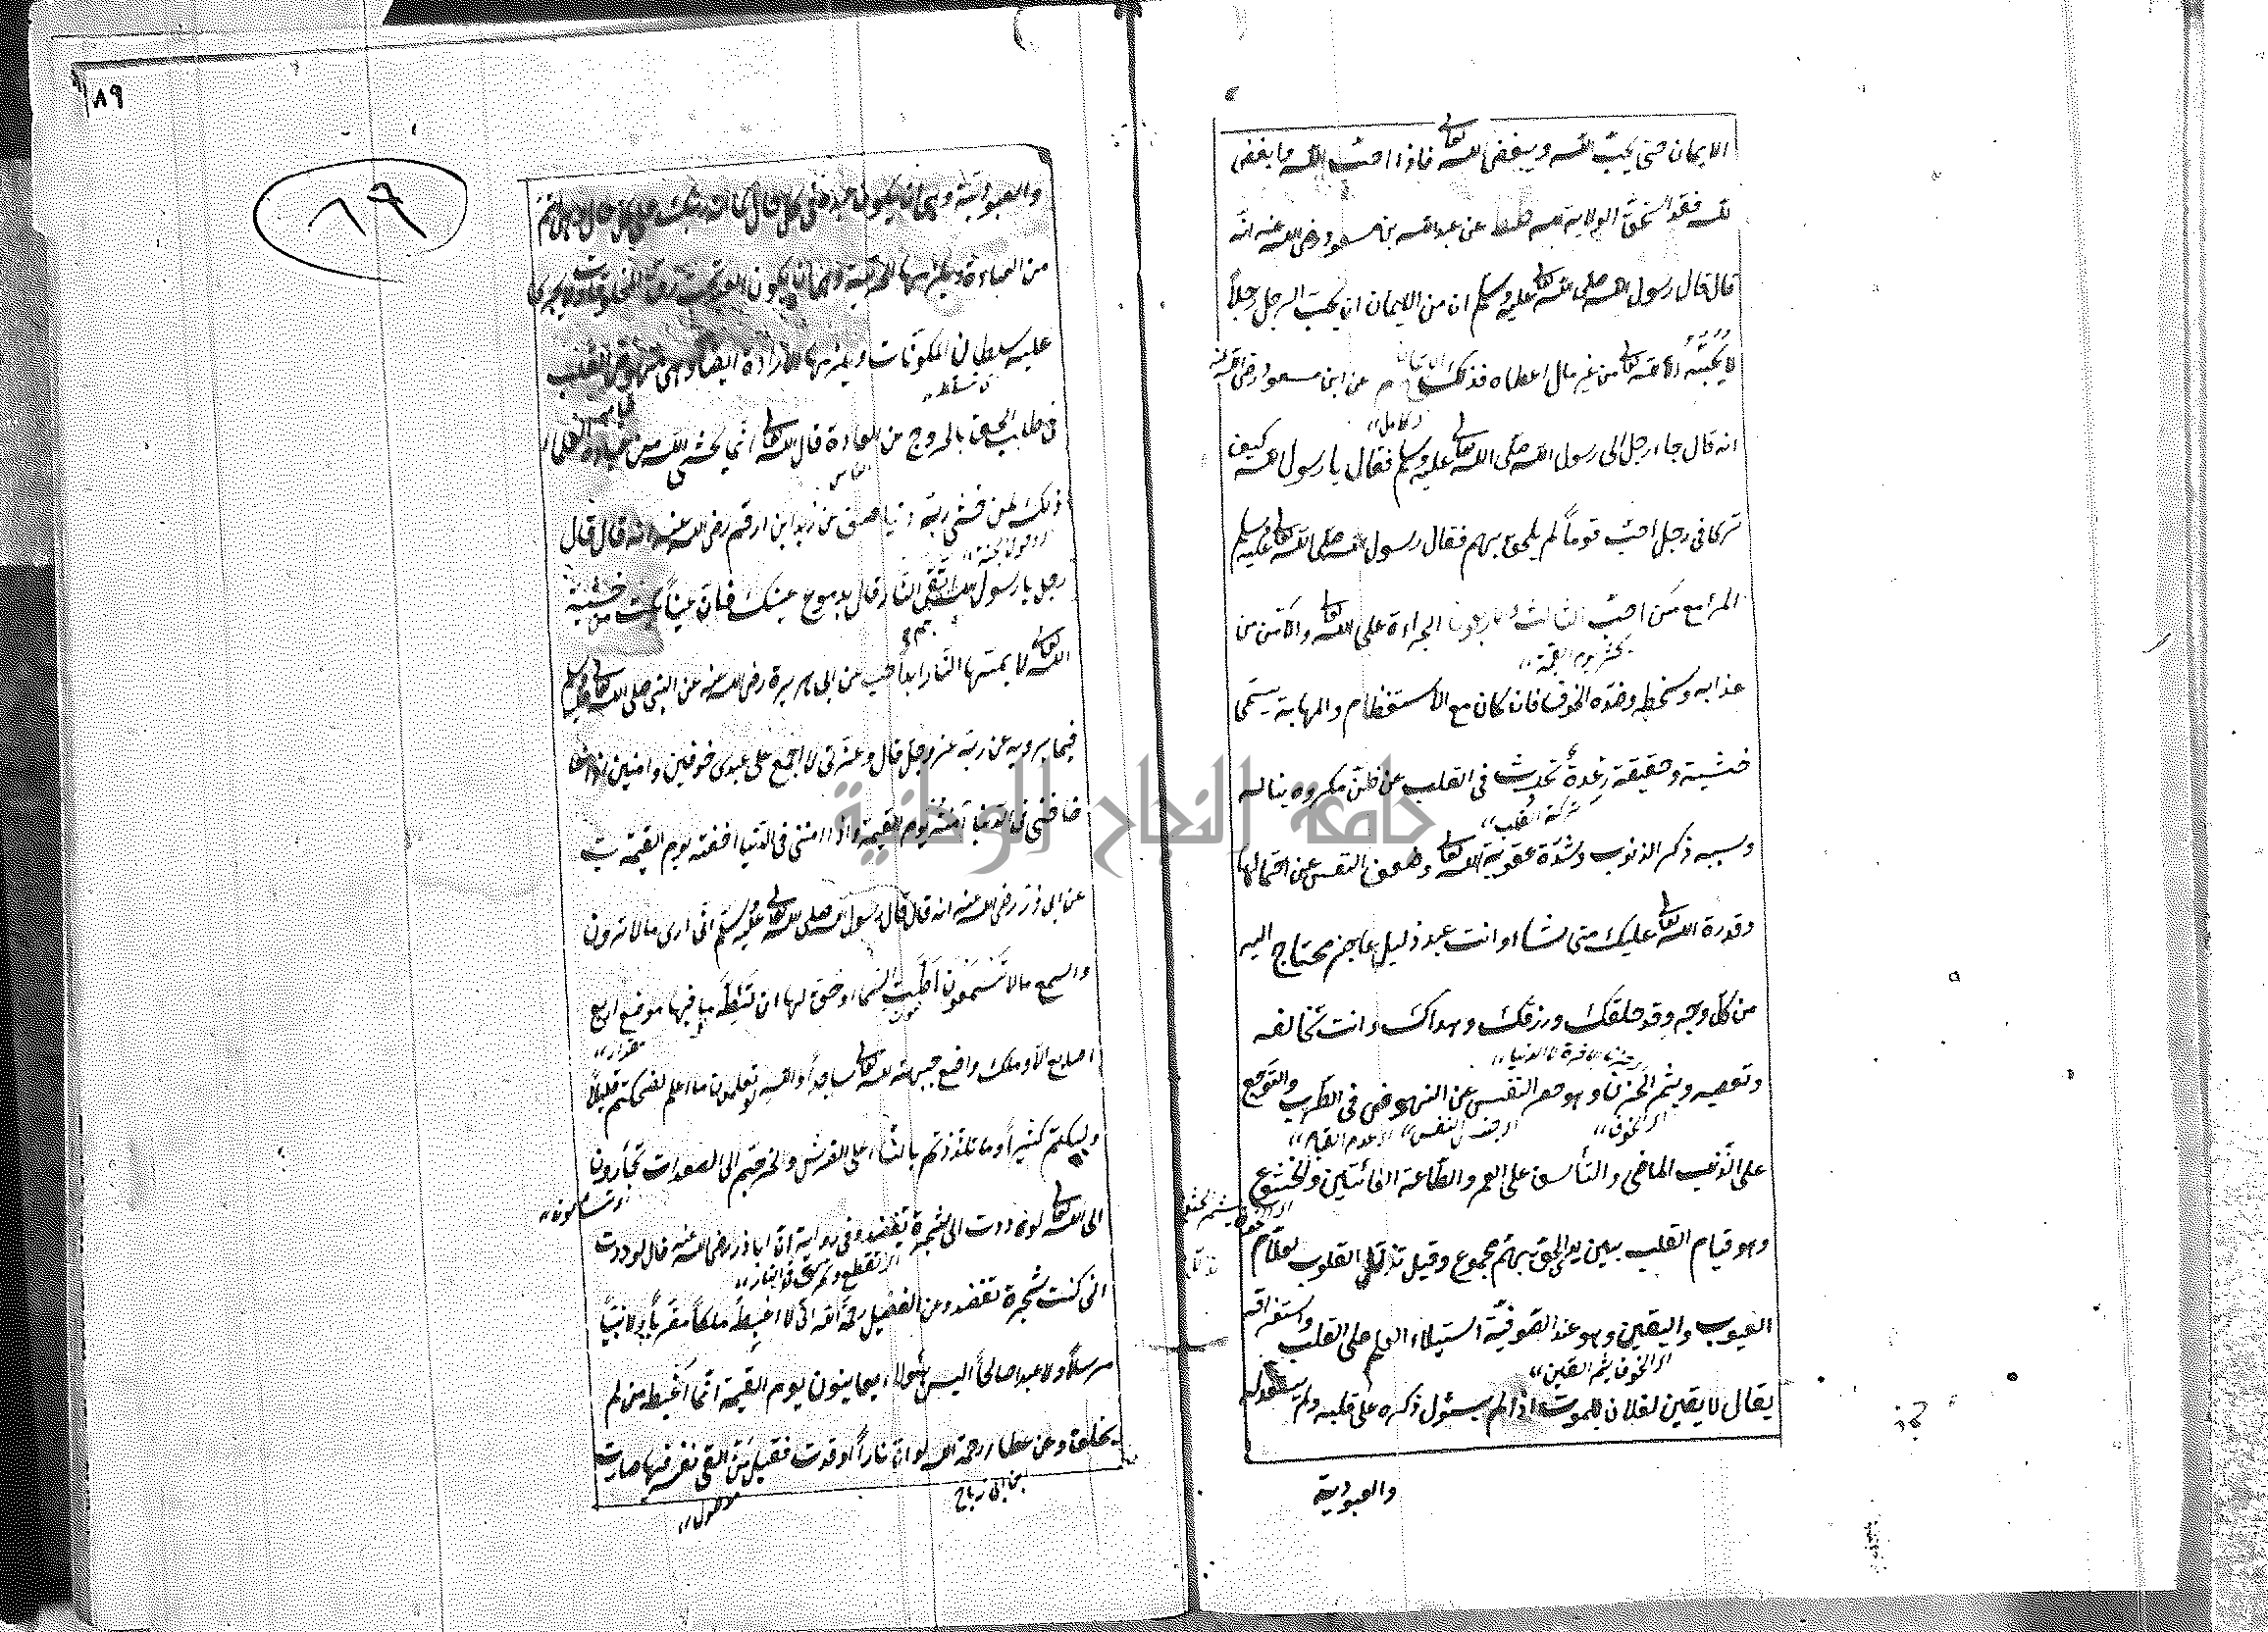 الايمان حتى يحب لله ويبغض لله تعالى فاذا احب لله وابغض
لله فقد استحق الولاية لله طط عن عبد الله بن مسعود رضى الله عنه انه
قال قال رسول الله صلى الله تعالى عليه وسلم ان من الايمان ان يحب الرجل رجلاً
لا يحبه الا لله تعالى من غير مال اعطاه فذلك الايمان م عن ابن مسعود رضى الله عنه
الكامل
انه قال جاء رجل الى رسول الله صلى الله تعالى عليه وسلم فقال يا رسول الله كيف
ترى فى رجل احب قوماً لم يلحق بهم فقال رسول الله صلى الله تعالى عليه وسلم
المرء مع من احب الثالث والاربعون الجراءة على الله تعالى والامن من
يحشر يوم القيمة
عذابه وسخطه وضده الخوف فان كان مع الاستعظام والمهابة يسمى
خشية وحقيقة رعدة تحدث فى القلب عن ظن مكروه يناله
حركة القلب
وسببه ذكر الذنوب وشدة عقوبة الله تعالى وضعف النفس عن احتمالها
وقدرة الله تعالى عليك متى شاء وانت عبد ذليل عاجز محتاج اليه
من كل وجه وقد خلقك ورزقك وهداك وانت تخالفه
وتعصيه ويثمر الحزن وهو حصر النفس عن النهوض فى الطرب والتوجع
اى الخوف
على الذنب الماضى والتأسف على العمر والطاعة الفائتين والخشوع
وهو قيام القلب بين يدى الحق بهم مجموع وقيل تذلل القلوب لعلام
الغيوب واليقين وهو عند الصوفية استيلاء العلم على القلب واستغراقه
اى الخوف يثمر اليقين
يقال لا يقين لفلان بالموت اذا لم يستول ذكره على قلبه ولم يستعد له
والعبودية
٨٩
٨٩
والعبودية وهى ان يكون عبده فى كل حال كما انه ربك على كل حال وهى اتم
من العبادة ويلزمها الحرية وهى ان لا يكون العبد تحت رق المخلوقات ولا يجرى
عليه سلطان المكونات ويلزمها الارادة ايضا وهى نهوض القلب
اى تسلط
فى طلب الحق بالخروج عن العادة قال الله تعالى انما يخشى الله من عباده العلماء
الناس
ذلك لمن خشى ربه دنيا صف عن زيد ابن ارقم رضى الله عنه انه قال قال
رجل يا رسول الله بم اتقى النار قال بدموع عينك فان عيناً بكت من خشية
الله تعالى لا تمسها النار ابداً حب عن ابى هريرة رضى الله عنه عن النبى صلى الله تعالى عليه وسلم
فيما يرويه عن ربه عز وجل قال وعزتى لا اجمع على عبدى خوفين وامنين اذا
خافنى فى الدنيا آمنته يوم القيمة واذا امننى فى الدنيا اخفته يوم القيمة ت
عن ابى ذر رضى الله عنه انه قال قال رسول الله صلى الله تعالى عليه وسلم انى ارى ما لا ترون
واسمع ما لا تسمعون اطت السماء وحق لها ان تئط ما فيها موضع اربع
مقدار
اصابع الا وملك واضع جبهته لله تعالى ساجداً والله لو تعلمون ما اعلم لضحكتم قليلاً
ولبكيتم كثيراً وما تلذذتم بالنساء على الفرش ولخرجتم الى الصعدات تجأرون
الى الله تعالى لوددت انى شجرة تعضد وفى رواية ان ابا ذر رضى الله عنه قال لوددت
انى كنت شجرة تعضد وعن الفضيل رحمه الله انى لا اغبط ملكاً مقرباً ولا نبياً
مرسلاً ولا عبدا صالحاً اليس هؤلاء يعاينون يوم القيمة انما اغبط من لم
يخلق وعن عطاء رحمة الله لو ان ناراً اوقدت فقيل من القى نفسه فيها صارت
ابن ابى رباح
جامعة النجاح الوطنية